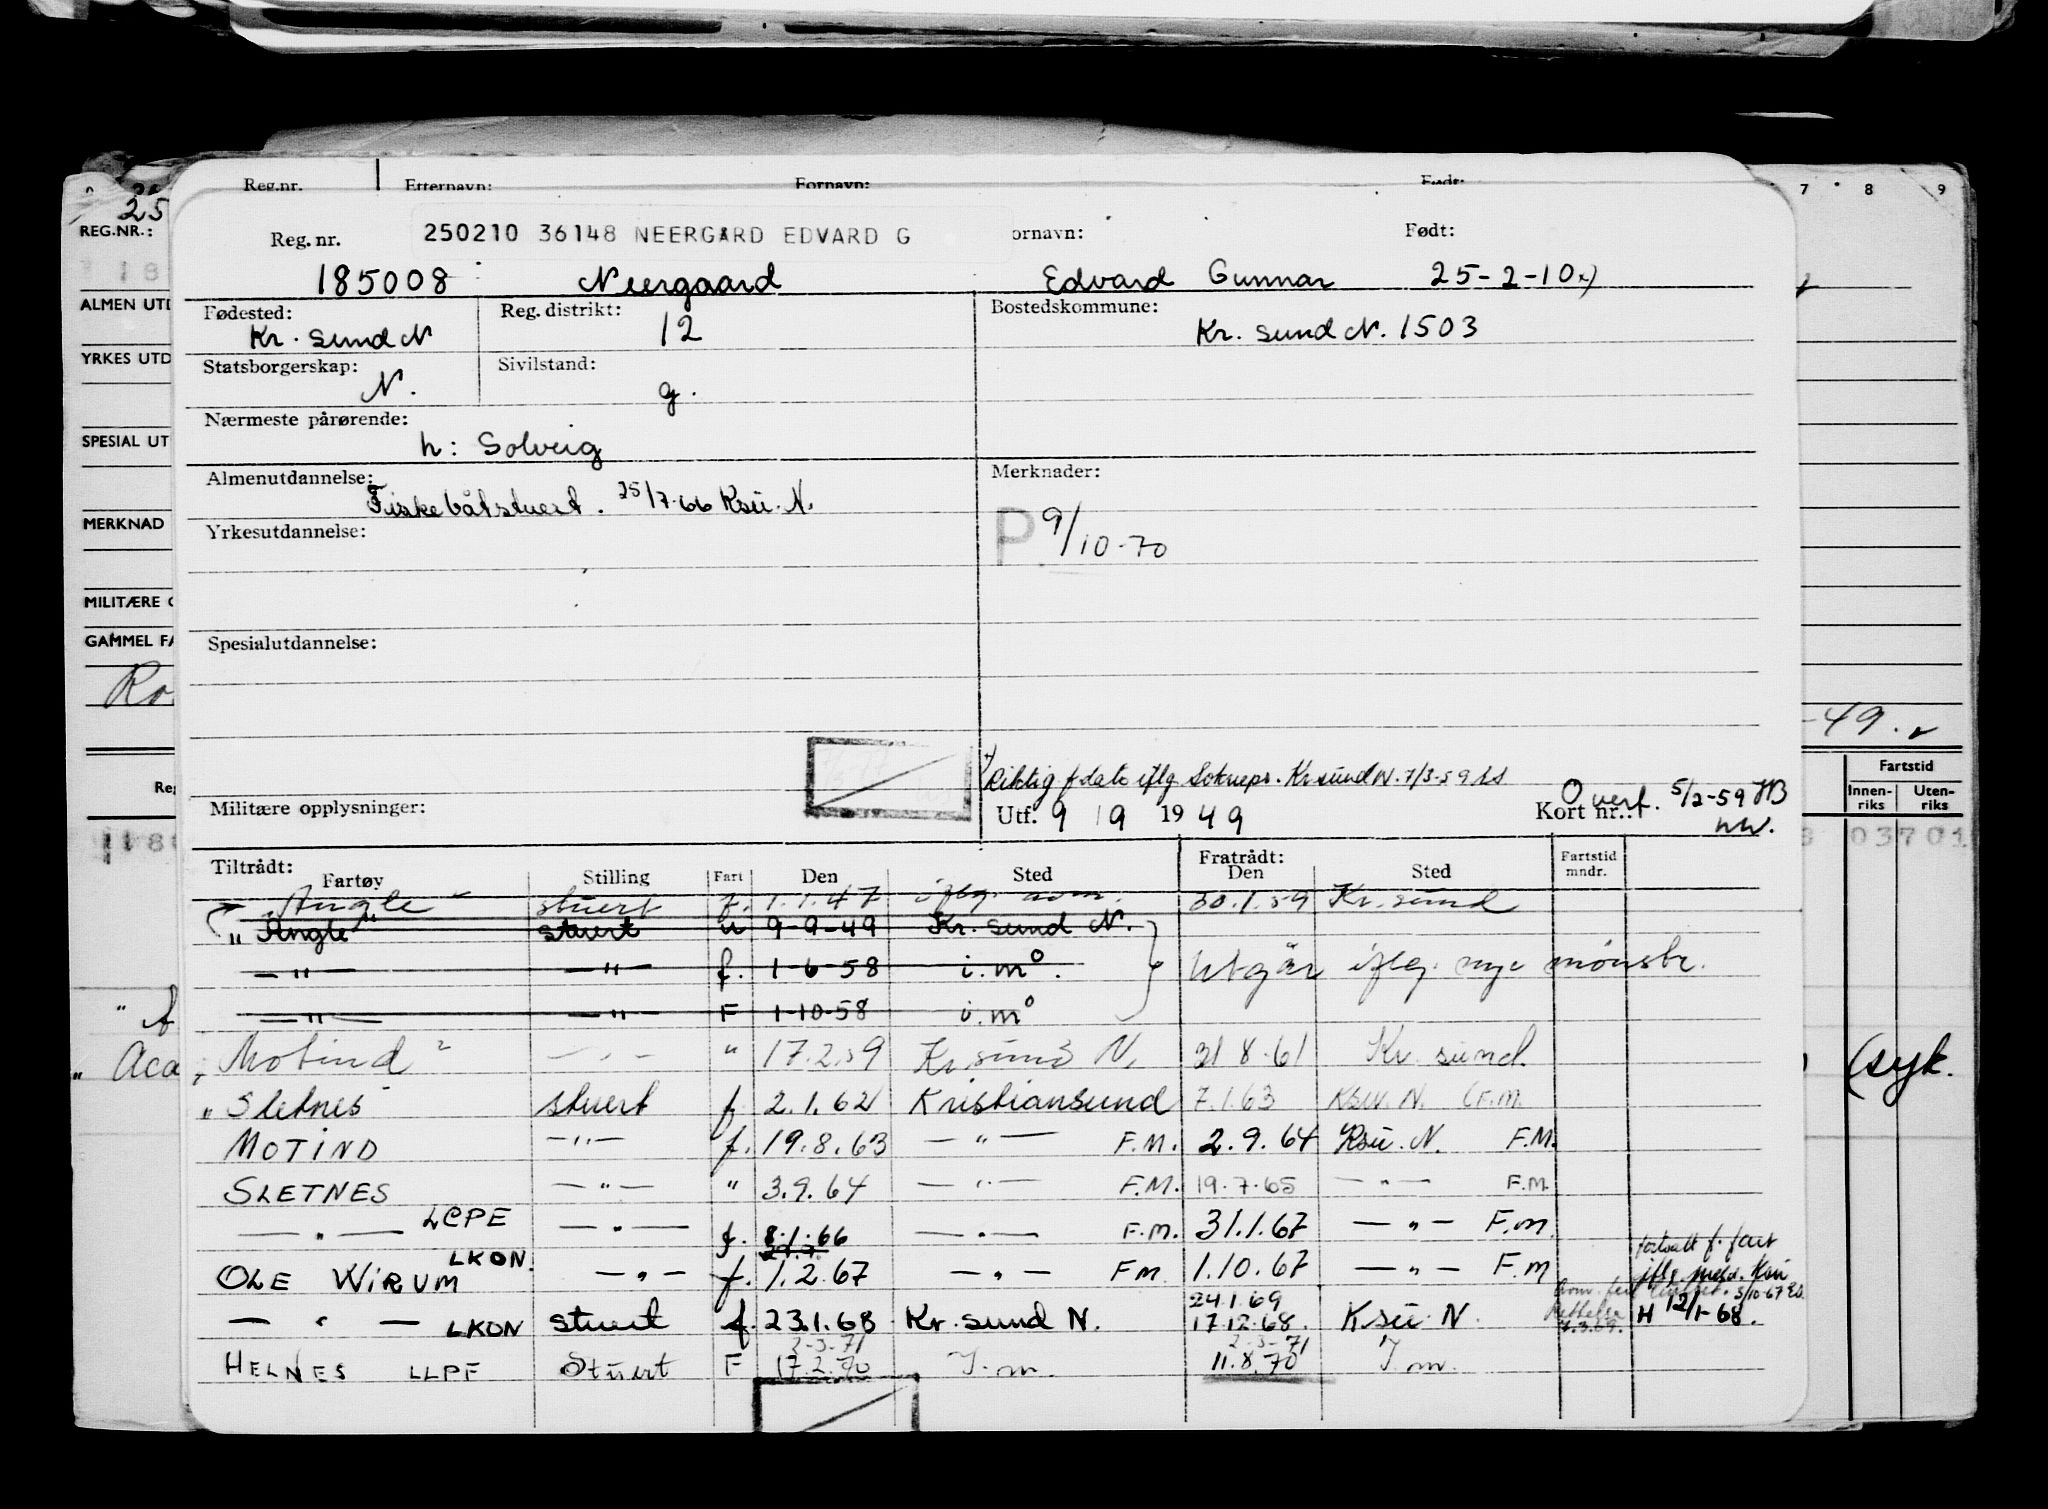 Reg.nr. Etternavn: Fornavn: Født:
7 8 9
25
REG.NR.:
Reg. nr. 250210 36148 NEERGÅRD EDVARD G ornavn: Født:
185008 Neergaard Edvard Gunnar 25-2-10 x)
Fødested: Reg. distrikt: Bostedskommune:
Kr. sund N 12 Kr. sund N. 1503
Statsborgerskap: Sivilstand:
N. g.
Nærmeste pårørende:
h: Solveig
Almenutdannelse: Merknader:
Fiskebåtstuert. 25/7-66 Ksu. N.
P 9/10-70
Yrkesutdannelse:
Spesialutdannelse:
ALMEN UTD
YRKES UTD
SPESIAL UT
MERKNAD
MILITÆRE O
GAMMEL FA
-49.
x) Riktig f dato iflg Soknepr. Kr sund N. 7/3-59
Militære opplysninger: Utf. 9 / 9 1949 Kort nr.: Overf. 5/2-59 HB
Fartstid
Innenriks Utenriks
03701
Tiltrådt: Fratrådt:
Fartøy Stilling Fart Den Sted Den Sted Fartstid mndr.
"Angle" stuert f. 1.1.47 iflg. 30.1.59 Kr. sund
"Angle" stuert u 9-9-49 Kr. sund N.
—"— —"— f. 1-6-58 i.mo. Utgår iflg. nye mønstr.
—"— —"— F 1-10-58 i.mo
"Motind" —"— " 17.2.59 Kr. sund N. 31.8.61 Kr. sund
"Sletnes" stuert f 2.1.62 Kristiansund 7.1.63 Ksu. N. (F.M.
MOTIND —"— f. 19.8.63 —"— F.M. 2.9.64 Ksu. N. F.M.
SLETNES —"— " 3.9.64 —"— F.M. 19.7.65 —"— F.M.
—"— LCPE —"— f. 8.1.66 —"— F.M. 31.1.67 —"— F.M
OLE WIRUM LKON. —"— f. 1.2.67 —"— FM 1.10.67 —"— F.M
fortsatt f. fart iflg. meld. Ksu 5/10-67
—"— LKON stuert f. 23.1.68 Kr. sund N. 24.1.69 17.12.68. Ksu N. H 12/1-68.
HELNES LLPF Stuert F 2-3-71 17.2.70 I.m. 2-3-71 11.8.70 I.m.
(syk.